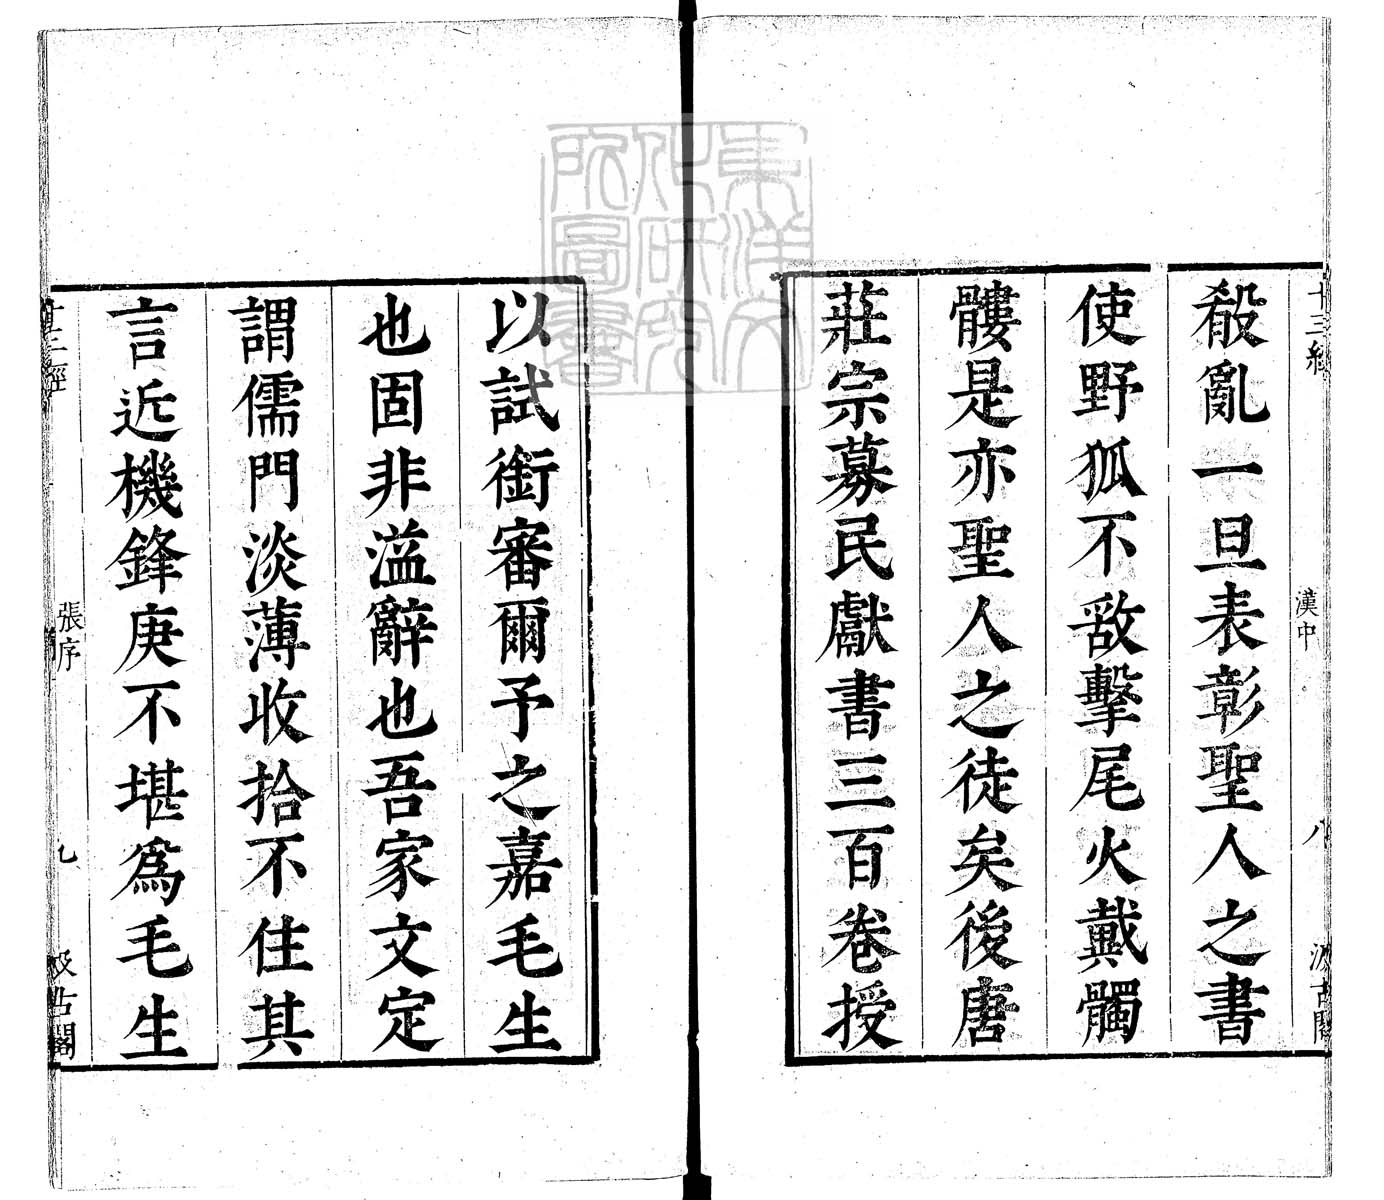 十三經
漢中
八
汲古閣
殽亂一旦表彰聖人之書
使野狐不敢擊尾火戴髑
髏是亦聖人之徒矣後唐
莊宗募民獻書三百卷授
以試銜審爾予之嘉毛生
也固非溢辭也吾家文定
謂儒門淡薄收拾不住其
言近機鋒庚不堪爲毛生
十三經
張序
九
汲古閣
東洋文
化研究
所圖書